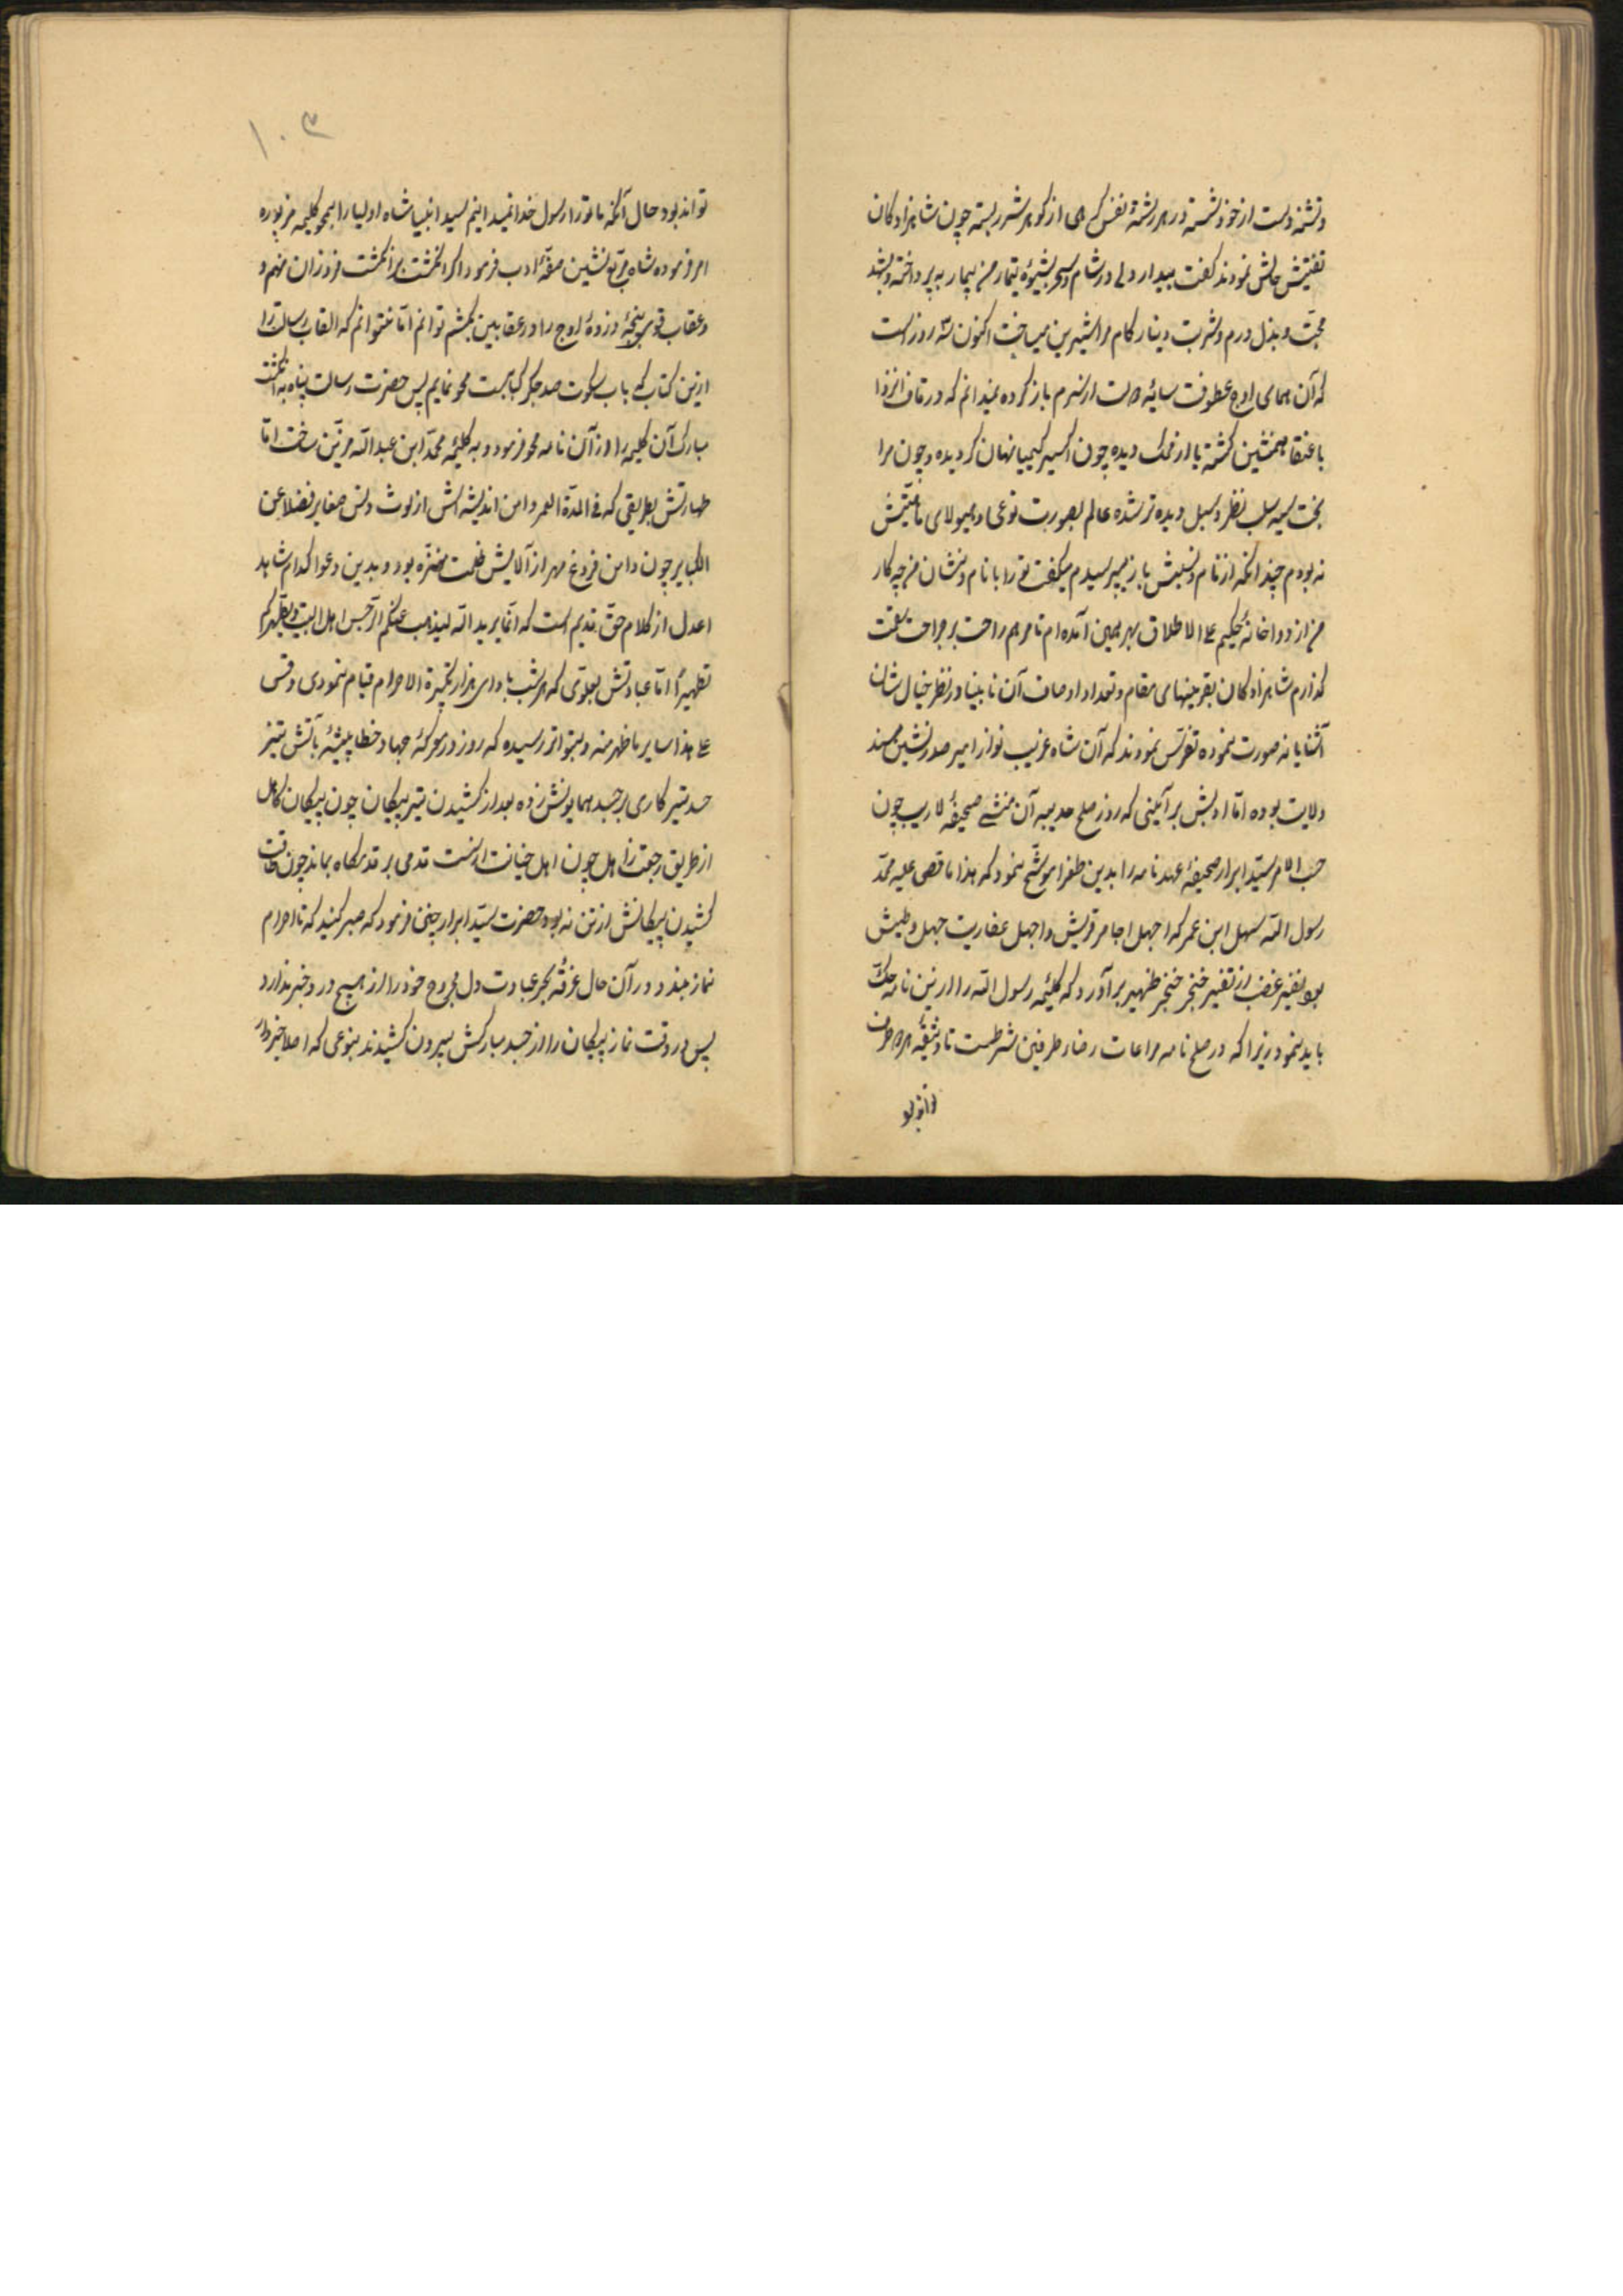 و تشنه دست از خود شسته در هر رشتهٔ نفس گرهی از گوهر شرر بسته چون شاهزادگان
تفتیش حالش نمودند گفت بیدار دلی در شام و سحر بشیوهٔ تیمار من بیمار به پرداخته و بشهد
محبّت و بذل درم و شربت دینار کام مرا شیرین میساخت اکنون سه روز است
که آن همای اوج عطوفت سایهٔ دولت از سرم باز کرده نمیدانم که در قاف انزوا
با عنقا همنشین گشته یا از فلک دیده چون اکسیر کیمیا نهان گردیده و چون مرا
بخت سیه سلب نظر و سبل دیده تر شده عالم بصورت نوعی و هیولای ماهیّتش
نه بودم چندانکه از نام و نسبش باز میپرسیدم میگفت تو را با نام و نشان من چه کار
من از دواخانهٔ حکیم علی الاطلاق بهر همین آمده‌ام تا مرهم راحت بر جراحت
گذارم شاهزادگان بقرینهای مقام و تعداد اوصاف آن نابینا در نظر خیال شان
آشنایانه صورت نموده تفرّس نمودند که آن شاه غریب نواز امیر صدر نشین مسند
ولایت بوده امّا ادبش بر آیینی که روز صلح حدیبیه آن منشی صحیفهٔ لاریب چون
حسب الامر سیّد ابرار صحیفهٔ عهدنامه را بدین طغرا موشّح نمود که هذا ما قضی علیه محمّد
رسول اللّه سهل ابن عمر که اجهل اجامر قریش و اجهل عفاریت جهل و طیش
بود نفیر غضب از خنجر حنجر ظهیر برآورد که کلیمهٔ رسول اللّه را ازین نامه حکّ
باید نمود زیرا که در صلح نامه مراعات رضاء طرفین شرطست تا وثیقهٔ هر دو طرف
تواند بود
۱۰۳
تواند بود حال آنکه ما تو را رسول خدا نمیدانیم سید انبیا شاه اولیا را بمحو کلیمه مزبوره
امر فرموده شاه مربّع نشین صفّهٔ ادب فرمود اگر انگشت بر انگشت فروزان نهم و
و عقاب قوی پنجهٔ ذروهٔ اوج را در عقابین کشم توانم امّا نتوانم که القاب رسالت را
ازین کتاب که باب سکوت صد جگر کبابست محو نمایم پس حضرت رسالت پناه به انگشت
مبارک آن کلیمه را از آن نامه محو فرمود و به کلیمهٔ محمّد ابن عبد اللّه مزیّن ساخت امّا
طهارتش بطریقی که فی المدّة العمر دامن اندیشه‌اش از لوث دنس صغایر فضلا عن
الکبایر چون دامن فروغ مهر از آلایش ظلمت منزّه بود و بدین دعوا کدام شاهد
اعدل از کلام حقّ قدیم است که انّما یرید اللّه لیذهب عنکم الرّجس اهل البیت و یطهّرکم
تطهیراً امّا عبادتش بطوری که هر شب باداى هزار تکبیرة الاحرام قیام نمودی و قس
علی هذا سایر ما ظهر منه و بتواتر رسیده که روز در معرکهٔ جهاد خطا پیشهٔ بآتش تیز
حسد تیر کاری بر جسد همایونش زده بعد از کشیدن تیر پیکان چون پیکان کاهل
از طریق رجعت زاهل چون اهل خیانت از دست قدمی بر قدمگاه بماند چون طاقت
کشیدن پیکانش از تن نه بود حضرت سیّد ابرار چنین فرمود که صبر کنید که تا احرام
نماز بندد و در آن حال غرقهٔ بحر عبادت دل مجروح خود را از هیچ درد خبر ندارد
پس در وقت نماز پیکان را از جسد مبارکش بیرون کشیدند بنوعی که اصلا خبردار